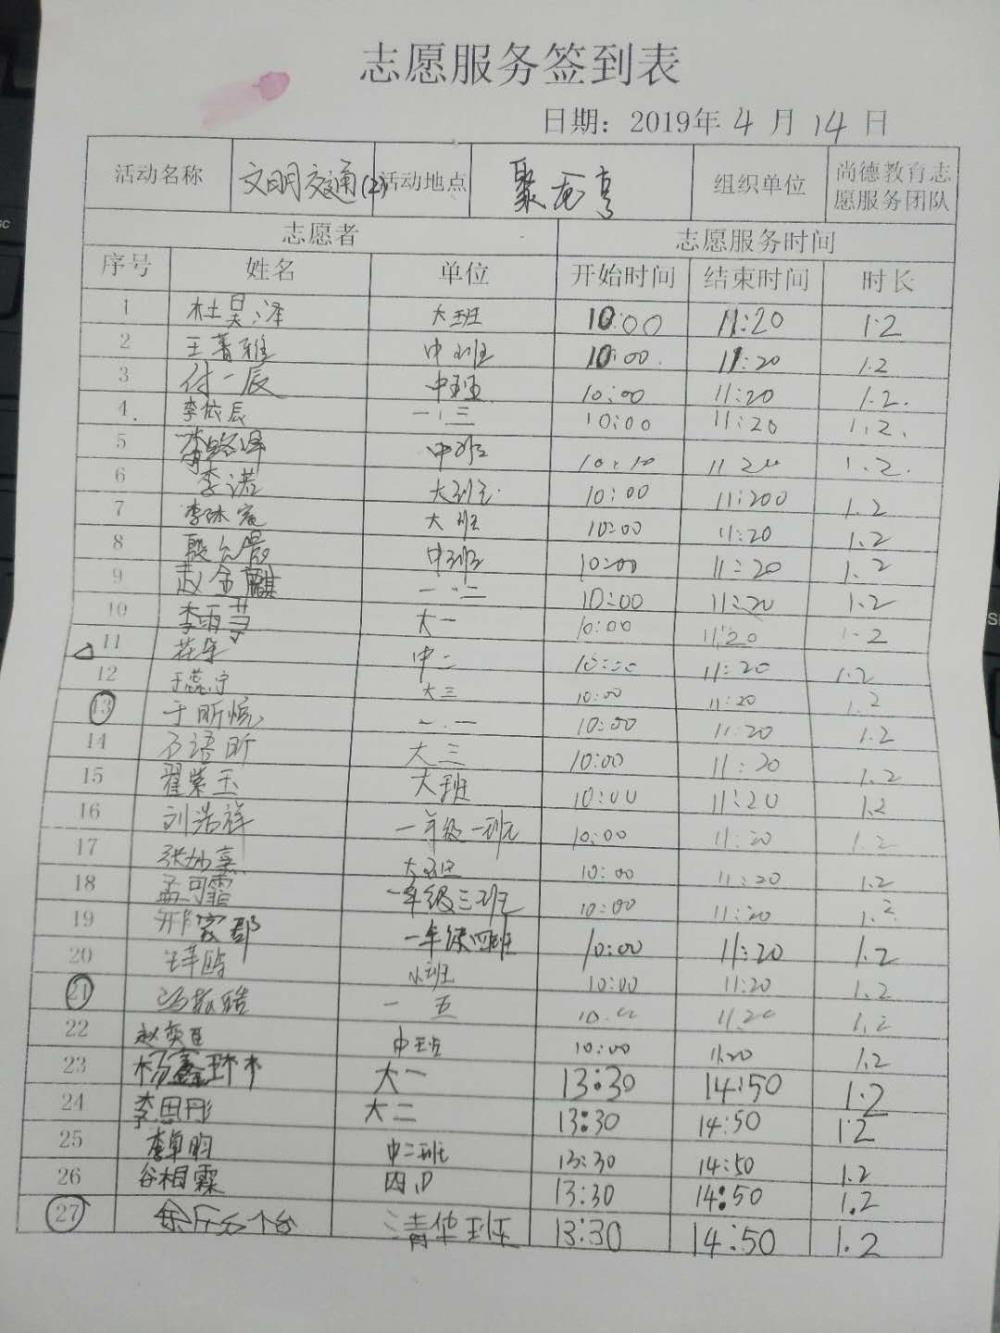 志愿服务签到表
日期：2019年4月14日
活动名称 文明交通(2) 活动地点 聚龙亭 组织单位 尚德教育志愿服务团队
志愿者 志愿服务时间
序号 姓名 单位 开始时间 结束时间 时长
1 杜昊泽 大班 10:00 11:20 1.2
2 王菁雅 中班 10:00 11:20 1.2
3 付一辰 中班 10:00 11:20 1.2.
4. 李依辰 一.三 10:00 11:20 1.2.
5 中班 10:10 11 20 1.2.
6 李诺 大班 10:00 11:200 1.2
7 大班 10:00 11:20 1.2
8 中班 10:00 11:20 1.2
9 赵金麒 一.二 10:00 11:20 1.2
10 大一 10:00 11:20 1.2
11 中二 10:00 11:20 1.2
12 大三 10:00 11:20 1.2
13 于昕悦 10:00 11:20 1.2
14 大三 10:00 11:20 1.2
15 翟紫玉 大班 10:00 11:20 1.2
16 刘浩祥 一年级一班 10:00 11:20 1.2
17 大班 10:00 11:20 1.2
18 孟可霏 一年级三班 10:00 11:20 1.2
19 邢家郡 一年级四班 10:00 11:20 1.2
20 小班 10:00 11:20 1.2
21 一 五 11:20 1.2
22 赵奕 中班 10:00 11:20 1.2
23 杨鑫琳 大一 13:30 14:50 1.2
24 李思彤 大二 13:30 14:50 1.2
25 李卓昀 中二班 13:30 14:50 1.2
26 谷相霖 13:30 14:50 1.2
27 清华班 13:30 14:50 1.2